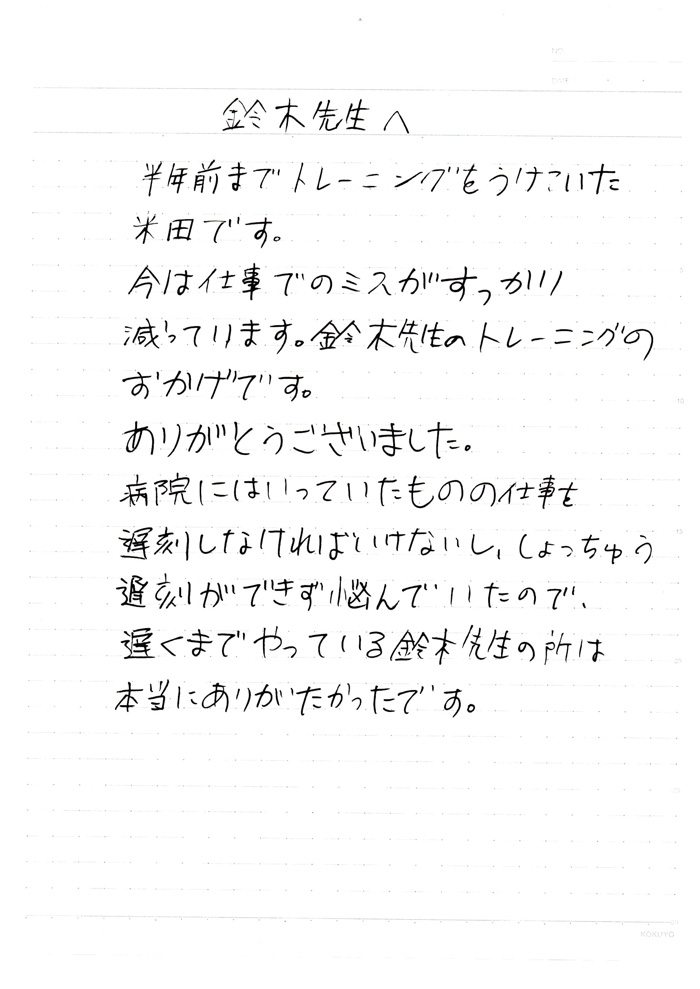 NO.
DATE
鈴木先生へ
半年前までトレーニングをうけていた
米田です。
今は仕事でのミスがすっかり
減っています。鈴木先生のトレーニングの
おかげです。
ありがとうございました。
病院にはいっていたものの仕事を
遅刻しなければいけないし、しょっちゅう
遅刻ができず悩んでいたので、
遅くまでやっている鈴木先生の所は
本当にありがたかったです。
KOKUYO